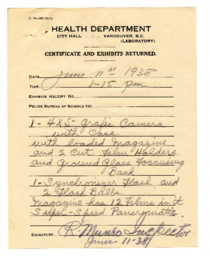 HEALTH DEPARTMENT
CITY HALL VANCOUVER, B.C.
(LABORATORY)
CERTIFICATE AND EXHIBITS RETURNED.
DATE June 11th 1938
TIME 1-15 pm
EXHIBITS RECEIPT NO.
POLICE BUREAU OF SCIENCE NO.
1 - 4X5 - Grafic Camera
with Case
with loaded Magazine
and 2 Cut Film Holders
and Ground Glass Focusing
Back
1 - Synchronizer Flash and
2 Flash Bulbs
Magazine has 12 films in it
Super-Speed Panchromatic
SIGNATURE R Munro Inspector
June 11-38